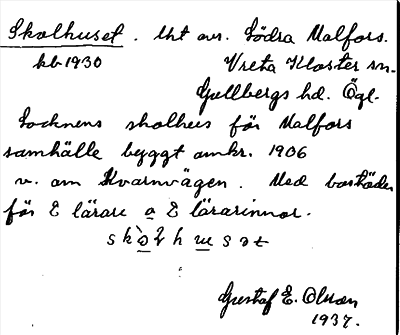 Skolhuset. lht avs. Södra Malfors.
kb 1930 Vreta Kloster sn.
Gullbergs hd. Ögl.
Socknens skolhus för Malfors
samhälle byggt omkr. 1906
v. om Kvarnvägen. Med bostäder
för 2 lärare o 2 lärarinnor.
Gustaf E. Olsson
1937.